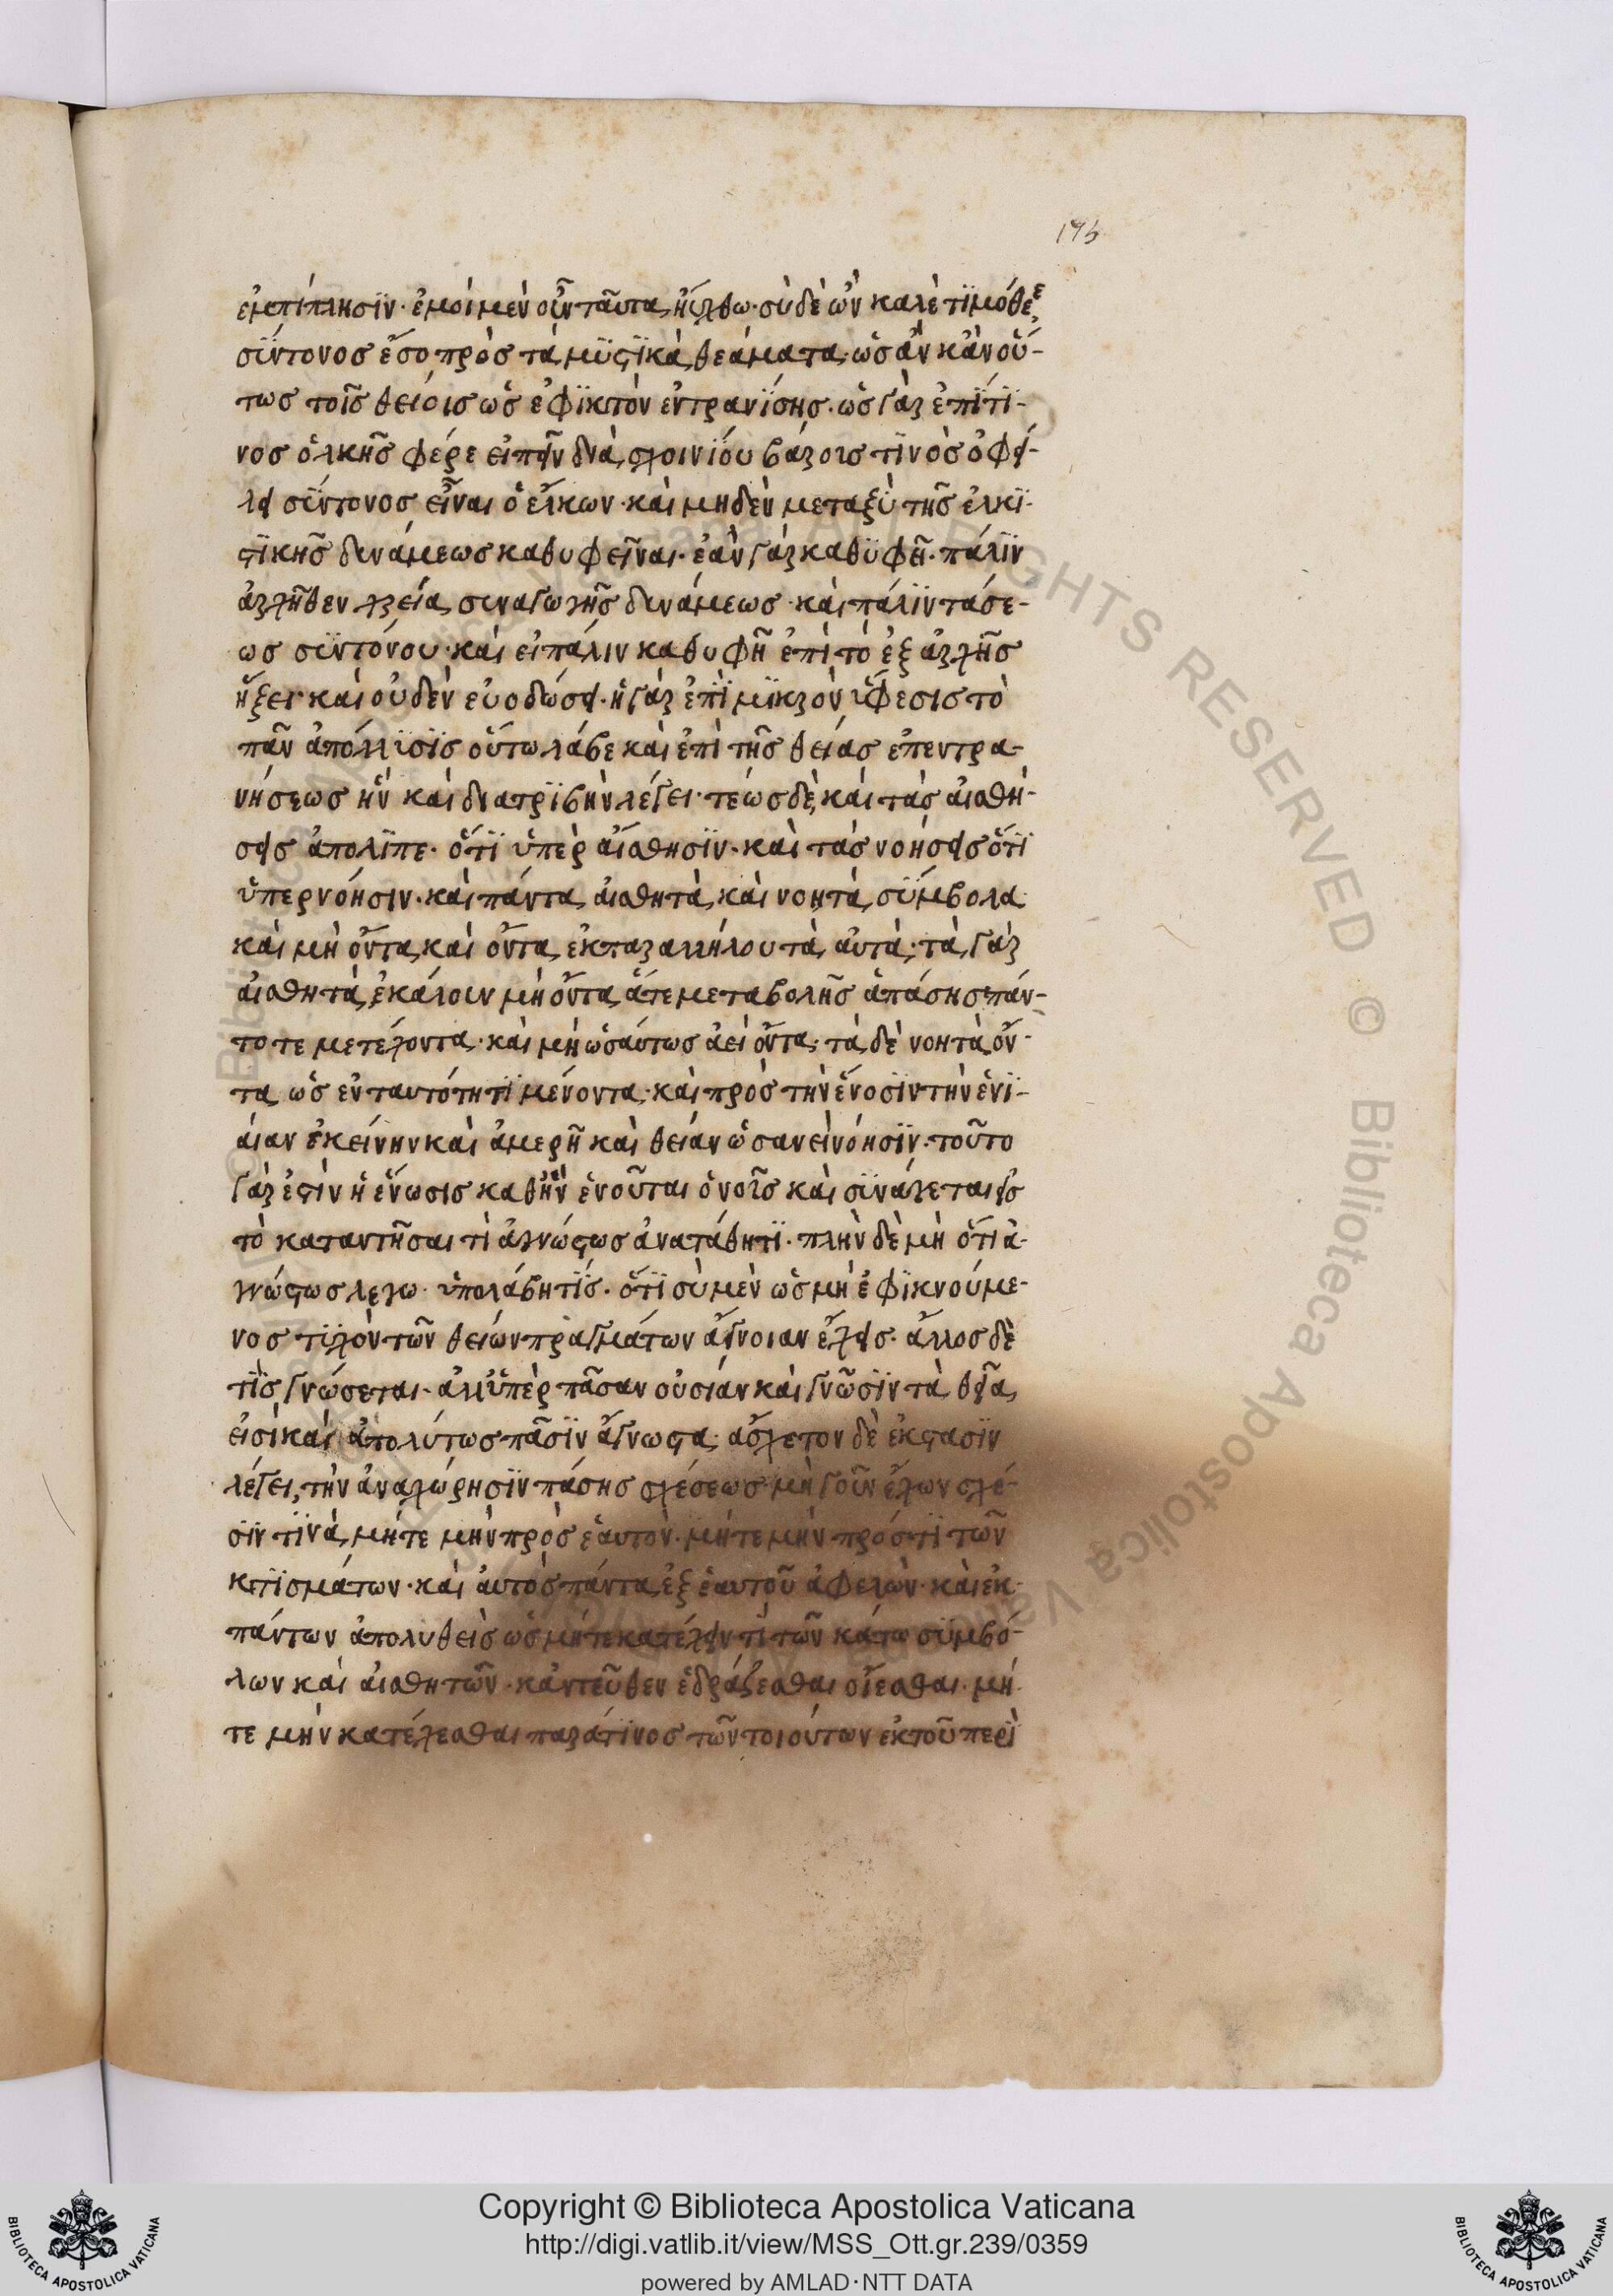 195
ἐμπίπλησϊν· ἐμοὶ μὲν οὖν ταῦτα ηὔχθω· σὺ δὲ ὦν καλὲ τϊμόθεε
σϋντονοσ ἔσο πρὸσ τὰ μϋστϊκὰ θεάματα· ὡσ ἂν κἂν οὕ-
τωσ τοῖσ θείοισ ὡσ ἐφϊκτὸν ἐντρανΐσησ. ὡσ γὰρ ἐπΐ τϊ-
νοσ ὁλκῆσ φέρε εἰπεῖν διὰ σχοινΐου βάροισ τϊνὸσ ὀφεί-
λει σΰντονοσ εἶναι ὁ ἕλκων· καὶ μηδὲν μεταξὺ τῆσ ἑλκϊ-
στϊκῆσ δυνάμεωσ καθυφεῖναι· ἐὰν γὰρ καθϋφῆ· πάλϊν
ἀρχῆθεν χρεία συναγωγῆσ δυνάμεωσ· καὶ πάλϊν τάσε-
ωσ συντόνου· καὶ εἰ πάλιν καθυφῆ ἐπὶ τὸ ἐξ ἀρχῆσ
ἥξει· καὶ οὐδὲν εὐοδώσει· ἡ γὰρ ἐπΐ μϊκρὸν ὕφεσισ τὸ
πᾶν ἀπόλλϋσϊσ οὕτω λάβε καὶ ἐπὶ τῆσ θείασ ἐπεντρα-
νήσεωσ ἣν καὶ διατρϊβὴν λέγει· τέωσ δὲ καὶ τὰσ αἰσθή-
σεισ ἀπολϊπε· ὅτϊ ὑπὲρ αἴσθησϊν· καὶ τὰσ νοήσεισ ὅτϊ
ὑπερ νόησιν· καὶ πάντα αἰσθητὰ καὶ νοητὰ σΰμβολα·
καὶ μὴ ὄντα καὶ ὄντα ἐκ παραλλήλου τὰ αὐτὰ· τὰ γὰρ
αἰσθητὰ ἐκάλουν μὴ ὄντα ἅτε μεταβολῆσ ἁπάσησ πάν-
τοτε μετέχοντα· καὶ μὴ ὡσαύτωσ ἀεὶ ὄντα· τὰ δὲ νοητὰ ὄν-
τα ὡσ ἐν ταυτότητϊ μένοντα· καὶ πρὸσ τὴν ἕνοσϊν τὴν ἑνϊ-
αίαν ἐκείνην καὶ ἀμερῆ καὶ θείαν ὡσανεὶ νόησϊν· τοῦτο
γάρ ἐστϊν ἡ ἕνωσισ καθ' ἣν ἑνοῦται ὁ νοῦσ καὶ συνάγεται εἰσ
τὸ καταντῆσαι τὶ ἀγνώστωσ ἀνατάθητϊ· πλὴν δὲ μὴ ὅτι ἀ-
γνώστωσ λέγω· ὑπολάβη τΐσ· ὅτϊ σὺ μὲν ὡσ μὴ ἐφϊκνούμε-
νοσ τϊ χὸν τῶν θείων πραγμάτων ἄγνοιαν ἔχεισ· ἄλλοσ δὲ
τΐσ γνώσεται· ἀλλ' ὑπὲρ πᾶσαν οὐσίαν καὶ γνῶσϊν τὰ θεῖα
εἰσὶ καὶ ἀπολύτωσ πᾶσϊν ἄγνωστα· ἄσχετον δὲ ἔκστασϊν
λέγει, τὴν ἀναχώρησϊν πάσησ σχέσεωσ· μὴ γοῦν ἔχων σχέ-
σϊν τϊνὰ μήτε μὴν πρὸσ ἑαυτὸν· μήτε μὴν πρόσ τϊ τῶν
κτϊσμάτων· καὶ αὐτὸσ πάντα ἐξ ἑαυτοῦ ἀφελὼν· καὶ ἐκ
πάντων ἀπολυθεὶσ ὡσ μήτε κατέχειν τὶ τῶν κάτω σϋμβό-
λων καὶ αἰσθητῶν· κἀντεῦθεν ἑδράζεσθαι οἴεσθαι· μή-
τε μὴν κατέχεσθαι παρά τϊνοσ τῶν τοιούτων ἐκ τοῦ περὶ
Copyright © Biblioteca Apostolica Vaticana
http://digi.vatlib.it/view/MSS_Ott.gr.239/0359
powered by AMLAD·NTT DATA
BIBLIOTECA APOSTOLICA VATICANA
BIBLIOTECA APOSTOLICA VATICANA